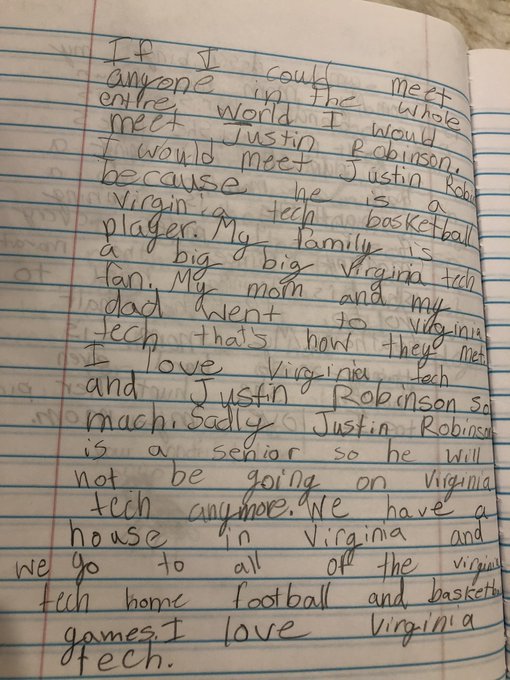 If I could meet
anyone in the whole
entire world I would
meet Justin Robinson.
I would meet Justin Robin
because he is a
virginia tech basketball
player. My family is
a big big virginia tech
fan. My mom and my
dad went to virginia
tech that's how they met.
I love virginia tech
and Justin Robinson so
mach. Sadly Justin Robinson
is a senior so he will
not be going on virginia
tech anymore. We have a
house in virginia and
we go to all of the virginia
tech home football and basketba
games. I love virginia
tech.